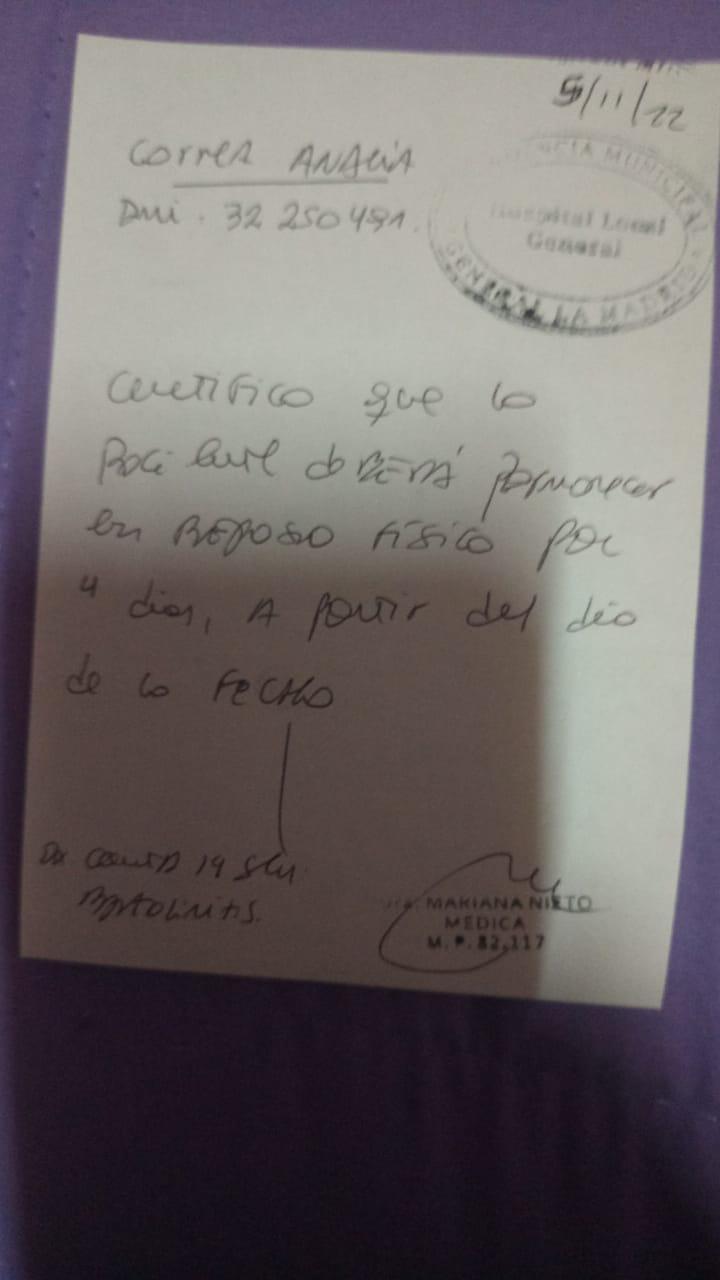 5/11/22
Correa ANALIA
Dni. 32 250 491.
CIA MUNICIPAL
Hospital Local
General
GENERAL LA MADRID
Certifico que la
Paciente deberá permanecer
en REPOSO Físico por
4 días, A partir del día
de la FECHA
Dx COVID 19
MARIANA NIETO
MEDICA
M. P. 82,117